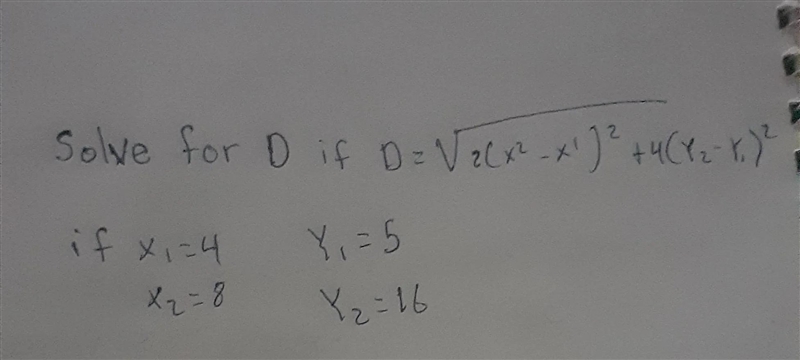 Solve for D if D=√2(x²-x¹)²+4(Y₂-Y₁)²
if x₁=4 Y₁=5
x₂=8 Y₂=16